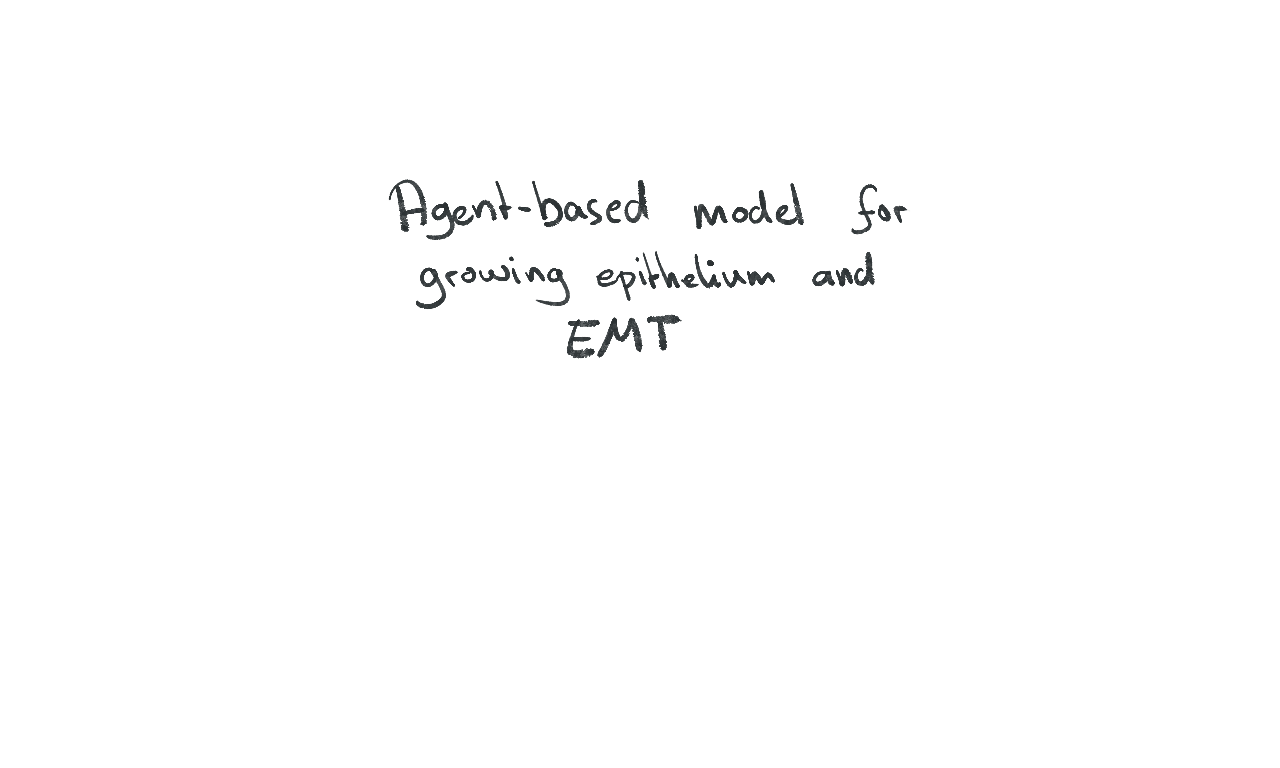 Agent-based model for
growing epithelium and
EMT